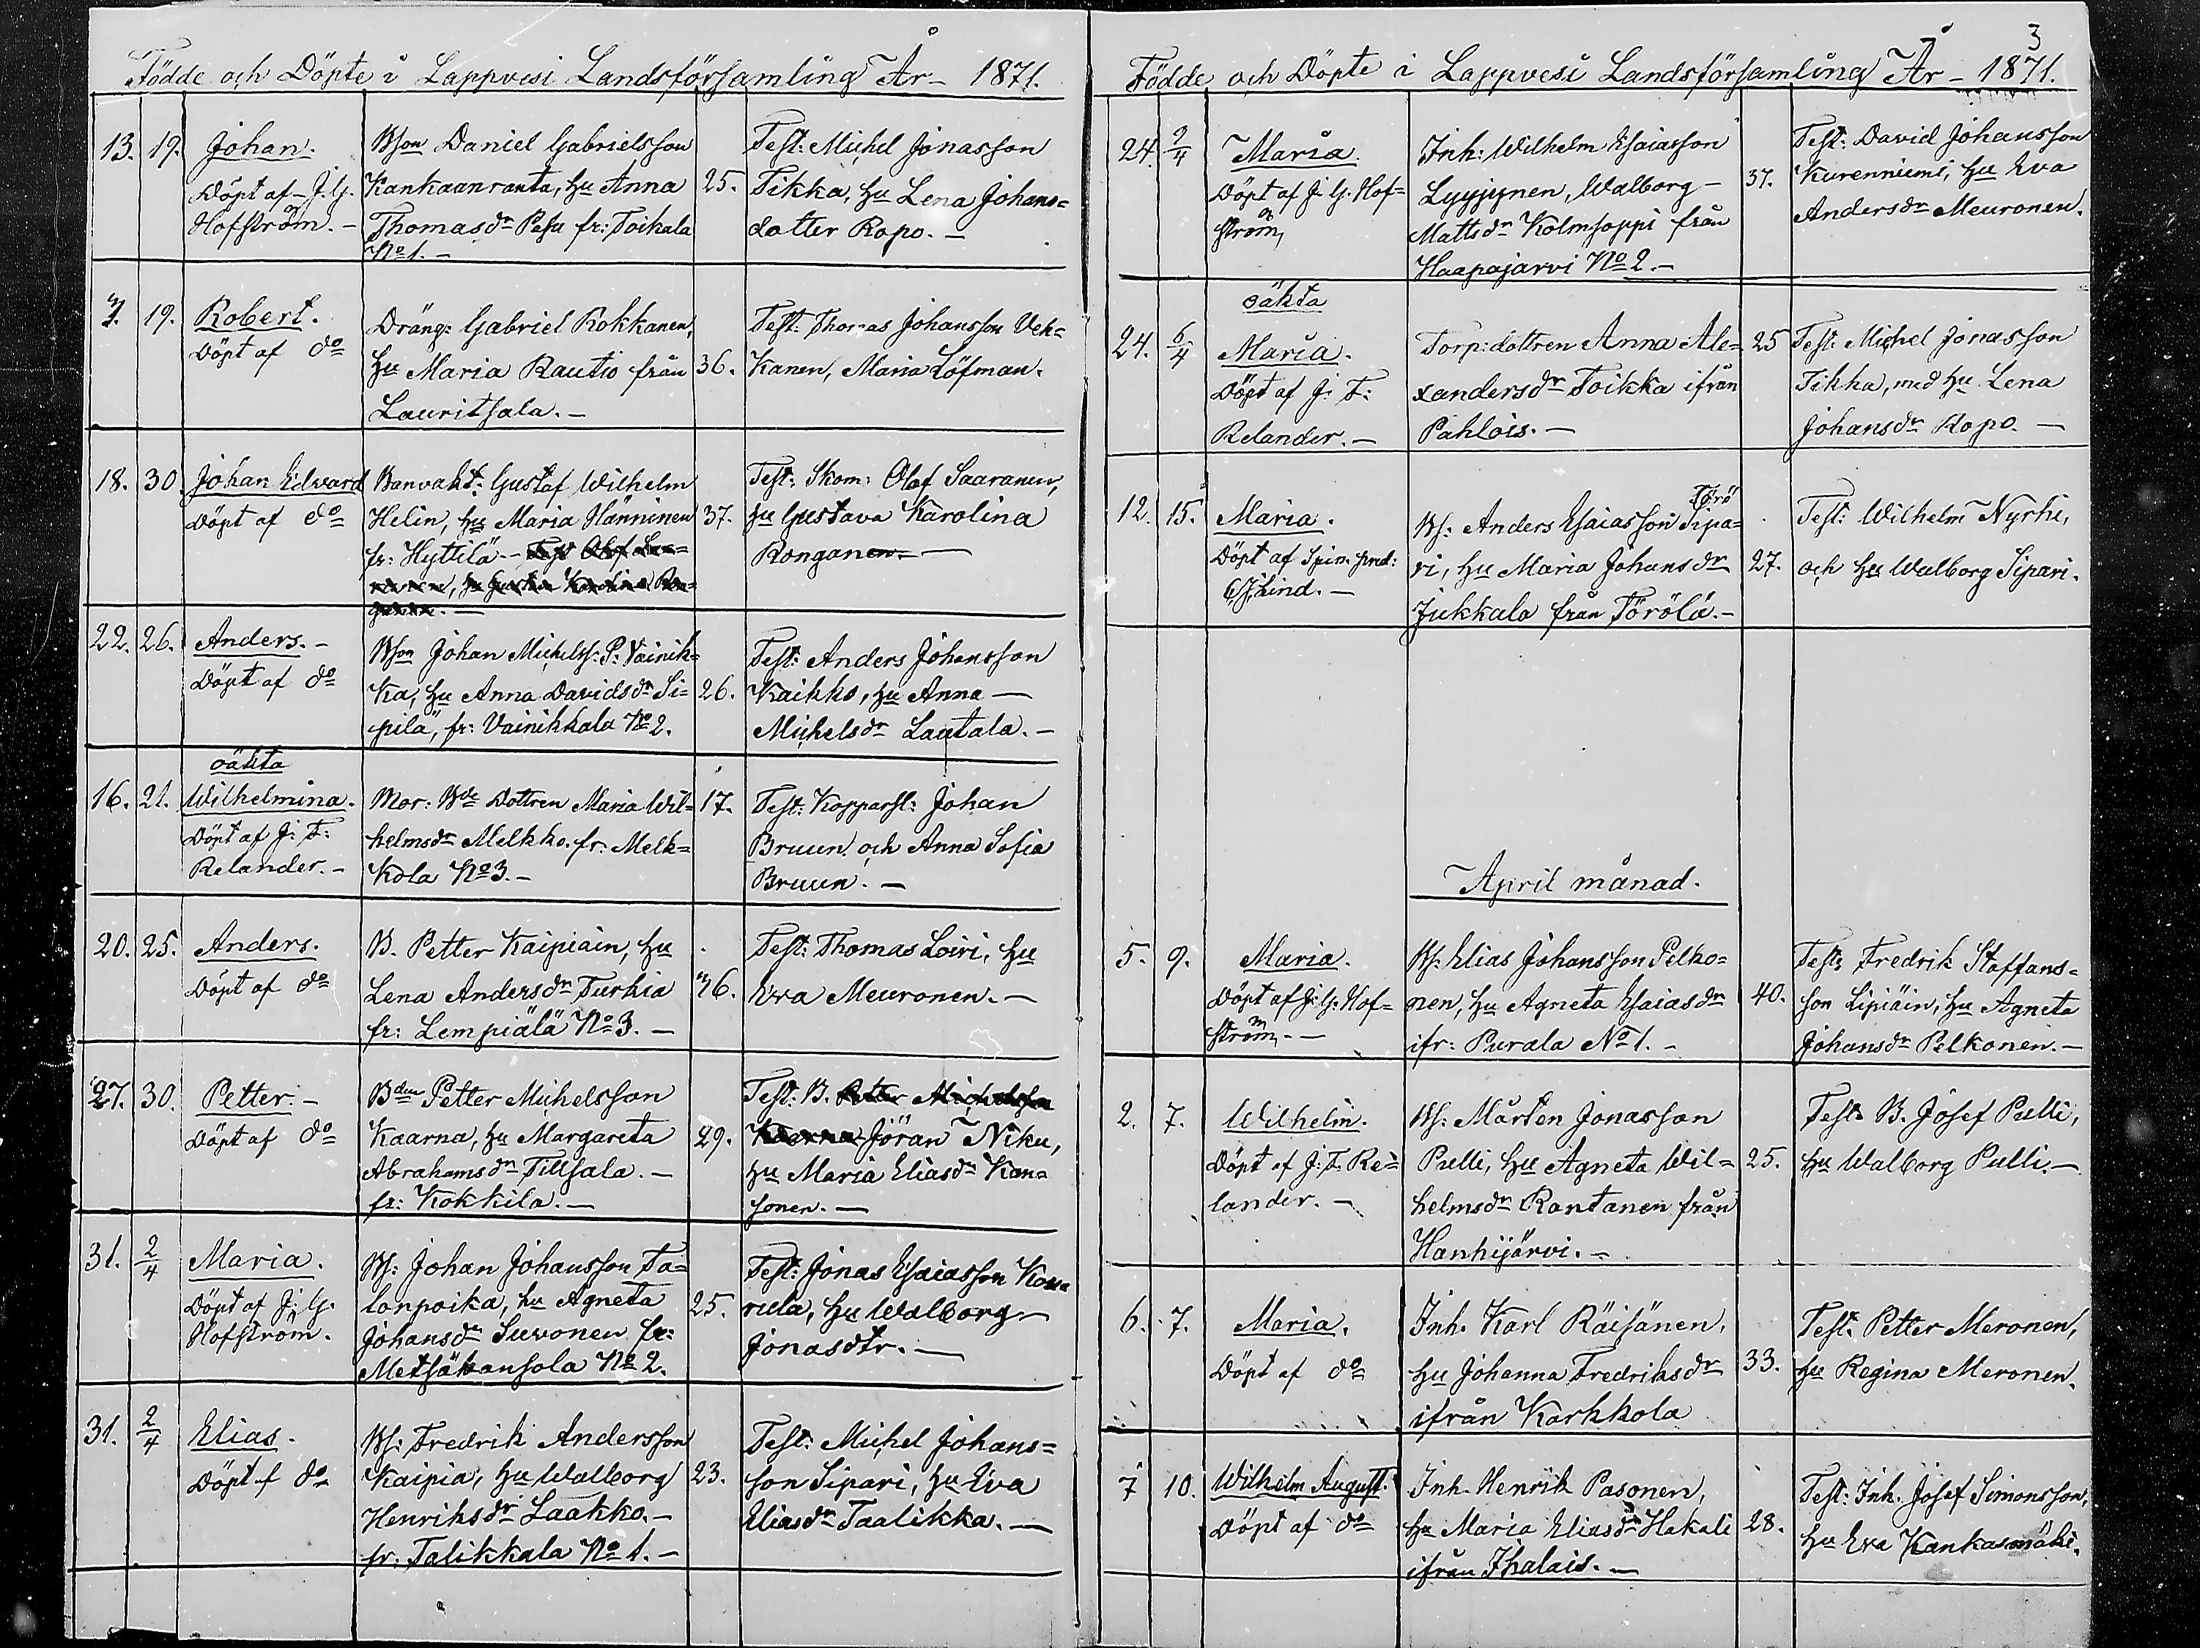 Födde och Döpte i Lappvesi Landsförsamling År - 1871.
13. 19. Johan. Bson Daniel Gabrielsson Test: Michel Jonasson
Döpt af J. G. Kankaanranta, hu Anna 25. Tikka, hu Lena Johans=
Hofström. - Thomasdr Pesu fr: Toikala dotter Ropo. -
No 1. -
7. 19. Robert. Dräng: Gabriel Rokkanen, Test: Thomas Johansson Veh=
Döpt af do hu Maria Rautio från 36. kanen, Maria Löfman.
Lauritsala. -
18. 30. Johan Edvard Banvakt: Gustaf Wilhelm Test: Skom: Olof Saaranen,
Döpt af do Helin, hu Maria Hänninen 37. hu Gustava Karolina
fr: Hyttilä - Ronganen. -
22. 26. Anders. - Bson Johan Michelss: P: Vainik= Test: Anders Johansson
Döpt af do ka, hu Anna Davidsdr Si= 26. Kaikko, hu Anna -
pilä, fr: Vainikkala No 2. Michelsdr Lautala. -
oäkta
16. 21. Wilhelmina. Mor: Bde Dottren Maria Wil= 17. Test: Kopparsl: Johan
Döpt af J: F: helmsdr Melkko. fr: Melk= Bruun och Anna Sofia
Relander. - kola No 3. - Bruun. -
20. 25. Anders. B. Petter Kaipiain, hu Test: Thomas Loiri, hu
Döpt af do Lena Andersdr Turkia 46. Eva Meuronen. -
fr: Lempiälä No 3. -
27. 30. Petter. - Bden Petter Michelsson Test: B. Petter Michelsson
Döpt af do Kaarna, hu Margareta 29. Kaarna Jöran Niku,
Abrahamsdr Tillsala. - hu Maria Eliasdr Kan=
fr: Kokkila. - sonen. -
31. 2/4 Maria. Bs: Johan Johansson Ta= Test: Jonas Esaiasson
Döpt af J. G. lonpoika, hu Agneta 25. rula, hu Walborg -
Hofström. Johansdr Suvonen fr: Jonasdtr. -
Metsäkansola No 2.
31. 2/4 Elias. Bs: Fredrik Andersson Test: Michel Johans=
Döpt f do Kaipia, hu Walborg 23. son Sipari, hu Eva
Henriksdr Laakko. - Eliasdr Taalikka. -
fr: Talikkala No 1. -
3
Födde och Döpte i Lappvesi Landsförsamling År - 1871.
24. 2/4 Maria. Inh: Wilhelm Esaiasson Test: David Johansson
Döpt af J. G. Hof= Lyyjynen, Walborg - 37. Kurenniemi, hu Eva
ström, Mattsdr Kolmsoppi från Andersdr Meuronen.
Haapajarvi No 2. -
oäkta
24. 6/4 Maria. Torp: dottren Anna Ale= 25 Test: Michel Jonasson
Döpt af J: F: xandersdr Toikka ifrån Tikka, med hu Lena
Relander. - Pahlois. - Johansdr Ropo. -
Törö
12. 15. Maria. Bs: Anders Esaiasson Sipa= Test: Wilhelm Nyrhi,
Döpt af ri, hu Maria Johansdr 27. och hu Walborg Sipari.
Lind. - Jukkala från Törölä. -
April månad.
5. 9. Maria. Bs: Elias Johansson Pelko= Test: Fredrik Staffans=
Döpt af J. G. Hof= nen, hu Agneta Esaiasdr 40. son Lipiäin, hu Agneta
ström. - ifr: Purala No 1. - Johansdr Pelkonen. -
2. 7. Wilhelm. Bs: Mårten Jonasson Test. B. Josef Pulli,
Döpt af J: F. Re= Pulli, hu Agneta Wil= 25. hu Walborg Pulli. -
lander. - helmsdr Rantanen från
Hanhijärvi. -
6. 7. Maria. Inh. Karl Räisänen, Test. Petter Meronen,
Döpt af do hu Johanna Fredriksdr 33. hu Regina Meronen.
ifrån Karhkola
7 10. Wilhelm August. Inh. Henrik Pasonen, Test: Inh. Josef Simonsson,
Döpt af do hu Maria Eliasdr Hakali 28. hu Eva Kankasmäki.
ifrån Ihalais. -